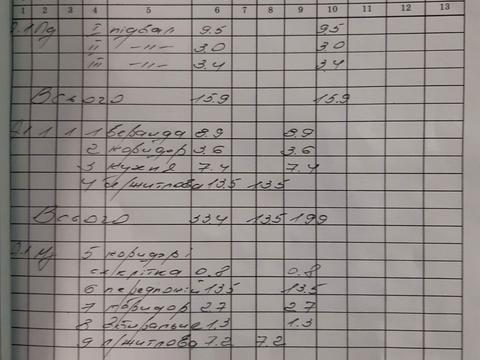 1 2 3 4 5 6 7 8 9 10 11 12 13
Пд I підвал 9.5 9.5
II -//- 3.0 3.0
III -//- 3.4 3.4
Всього 15.9 15.9
1 1 1 веранда 8.9 8.9
2 коридор 3.6 3.6
3 кухня 7.4 7.4
4 житлова 13.5 13.5
Всього 33.4 13.5 19.9
5 коридорі
0.8 0.8
6 13.5 13.5
7 коридор 2.7 2.7
8 1.3 1.3
9 житлова 7.2 7.2